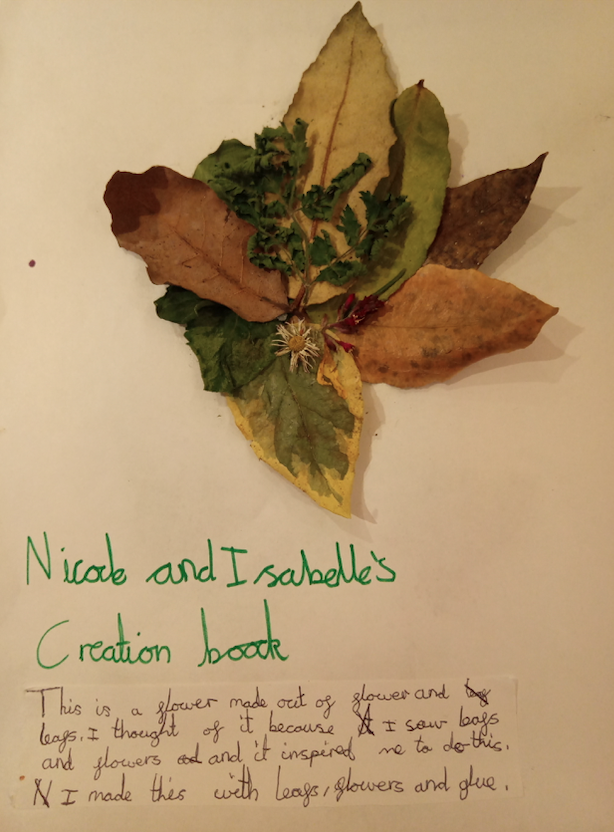 Nicole and Isabelle's
Creation book
This is a flower made out of flower and
leafs. I thought of it because I saw leafs
and flowers and it inspired me to do this.
I made this with leafs, flowers and glue.